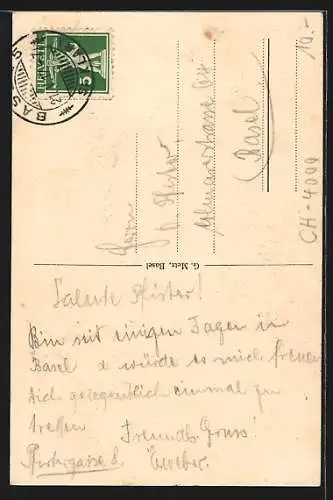 BASEL
HELVETIA
5
10.-
CH-4000
Herrn
Pfister
Basel
G. Metz, Basel
Salante Pfister!
Bin seit einigen Tagen in
Basel & würde es mich freuen
dich gelegentlich einmal zu
treffen Freundl. Gruss
8. E. Weber.